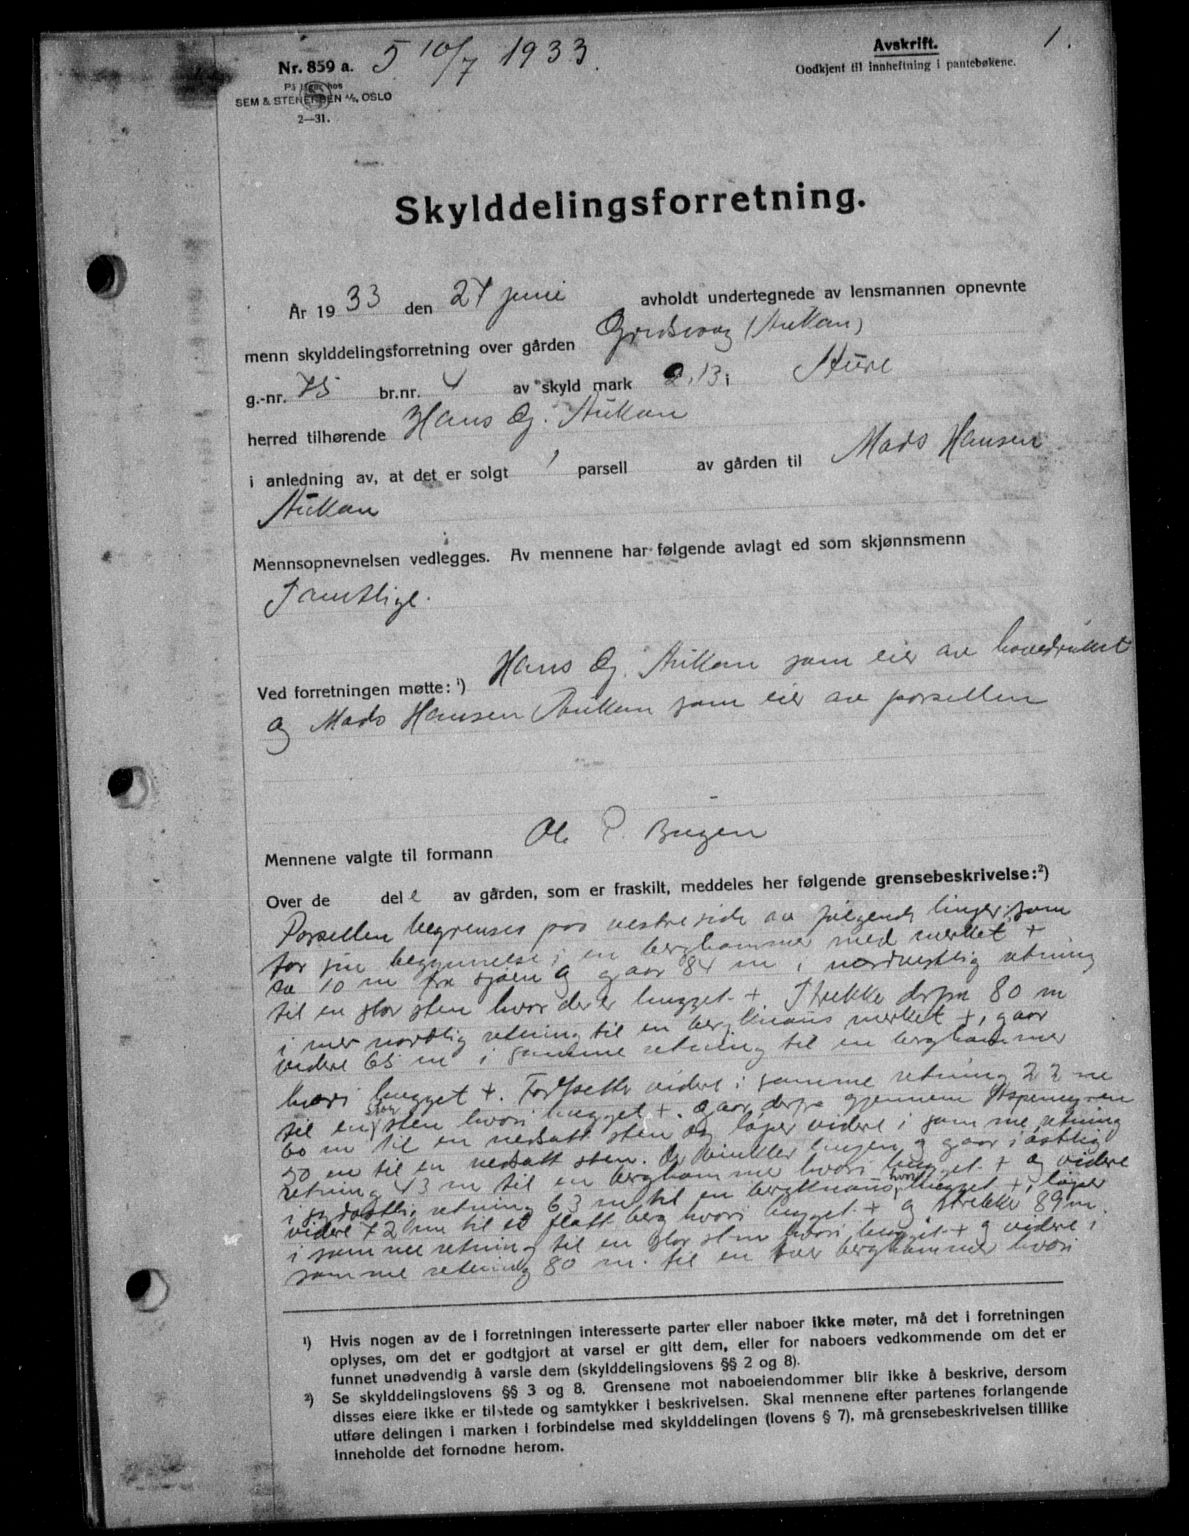 Nr. 859 a. 5 10/7 1933. Avskrift. 1.
På lager hos Godkjent til innheftning i pantebøkene.
SEM & STENERSEN A/S, OSLO
2—31.
Skylddelingsforretning.
År 1933 den 27 juni avholdt undertegnede av lensmannen opnevnte
menn skylddelingsforretning over gården (Aukan)
g.-nr. 75 br.nr. 4 av skyld mark 2.13 i Aure
herred tilhørende Hans Oj. Aukan
i anledning av, at det er solgt 1 parsell av gården til Mads Hansen
Aukan
Mennsopnevnelsen vedlegges. Av mennene har følgende avlagt ed som skjønnsmenn
Samtlige.
Ved forretningen møtte: ¹) Hans Oj. Aukan som eier av hovedbruket
og Mads Hansen Aukan som eier av parsellen
Mennene valgte til formann Ole P. Bugen
Over de dele av gården, som er fraskilt, meddeles her følgende grensebeskrivelse:²)
Parsellen begrenses paa vestre side av følgende linjer: som
tar sin begynnelse i en berghammer med merket +
ca 10 m fra sjøen og gaar 84 m i nordvestlig retning
til en stor sten hvor der er hugget +. Strekke derfra 80 m
i mer nordlig retning til en bergknaus merket +, gaar
videre 65 m i samme retning til en berghammer
hvori hugget +. Fortsetter videre i samme retning 22 m
til en stor sten hvori hugget +. gaar derfra gjennem
60 m til en nedsatt sten og løper videre i samme retning
50 m til en nedsatt sten. Der vinkler linjen og gaar i østlig
retning 43 m til en berghammer hvori hugget + og videre
i sydøstlig retning 63 m til en bergknaus hvori hugget +, løper
videre 72 m til et flatt berg hvori hugget + og strekke 89 m.
i samme retning til en stor sten hvori hugget + og videre i
samme retning 80 m. til en berghammer hvori
¹) Hvis nogen av de i forretningen interesserte parter eller naboer ikke møter, må det i forretningen
oplyses, om det er godtgjort at varsel er gitt dem, eller for naboers vedkommende om det er
funnet unødvendig å varsle dem (skylddelingslovens §§ 2 og 8).
²) Se skylddelingslovens §§ 3 og 8. Grensene mot naboeiendommer blir ikke å beskrive, dersom
disses eiere ikke er tilstede og samtykker i beskrivelsen. Skal mennene efter partenes forlangende
utføre delingen i marken i forbindelse med skylddelingen (lovens § 7), må grensebeskrivelsen tillike
inneholde det fornødne herom.